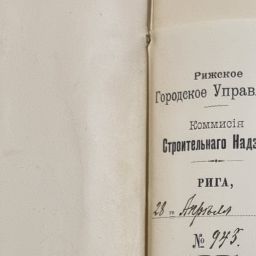 Рижское
Городское Управл
Коммисія
Строительнаго Надз
РИГА,
28 го Апрѣля
№ 975.